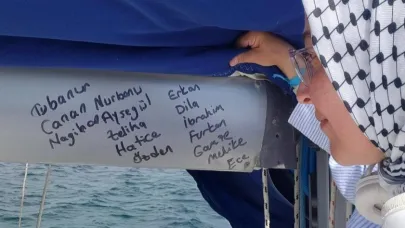 Tubanur
Canan Nurbanu
Nagihan Ayşegül
Zeliha
Hatice
Özden
Erkan
Dila
İbrahim
Furkan
Gamze
Melike
Ece